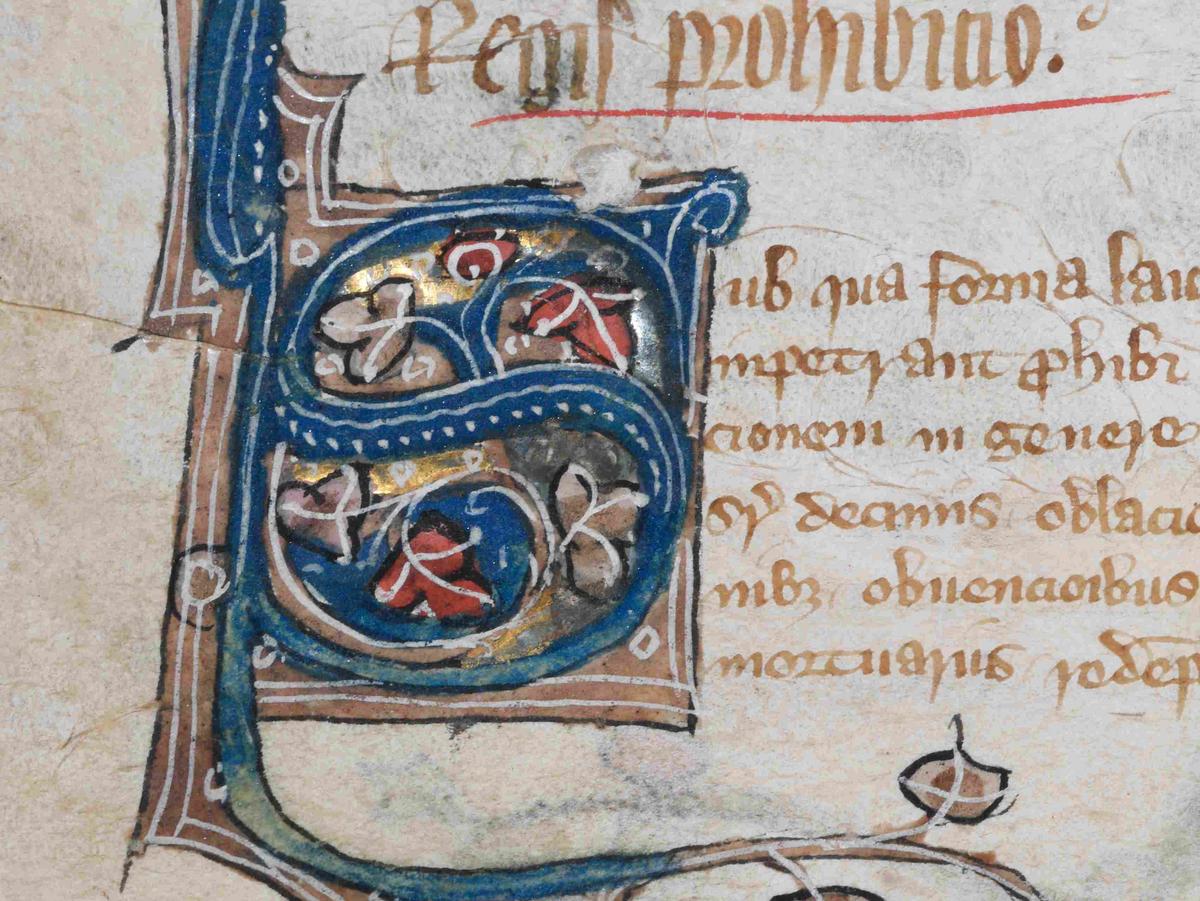 Regis prohibicio.
Sub qua forma laic
inpetrant ꝓhibi
cionem in genere
sꝫ decimis oblacio
nibꝫ obuencioibus
mortuariis redēp